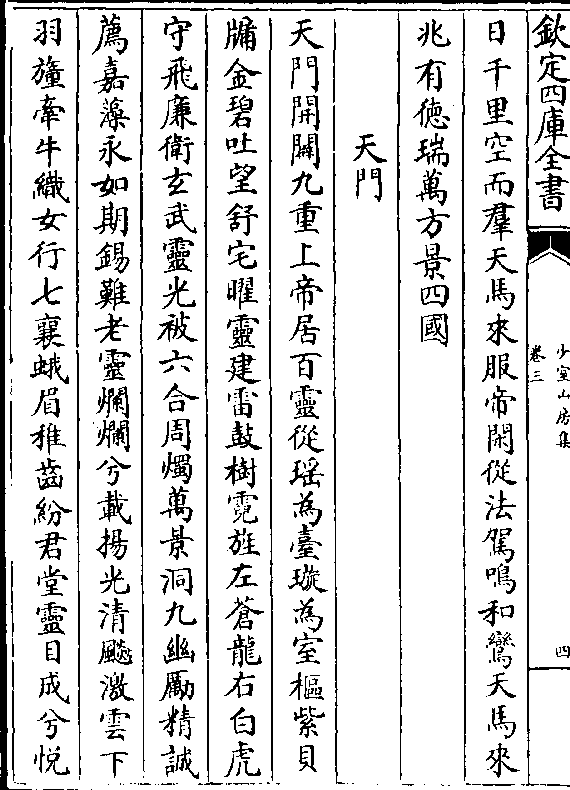 欽定四庫全書
少室山房集
卷三
四
日千里空而羣天馬來服帝閑從法駕鳴和鸞天馬來
兆有徳瑞萬方景四國
天門
天門開闢九重上帝居百靈從瑶為臺璇為室樞紫貝
牗金碧吐望舒宅曜靈建雷鼓樹霓旌左蒼龍右白虎
守飛廉衛玄武靈光被六合周燭萬景洞九幽勵精誠
薦嘉藻永如期錫難老靈爛爛兮載揚光清飈激雲下
羽旜牽牛織女行七襄蛾眉稚齒紛君堂靈目成兮悦